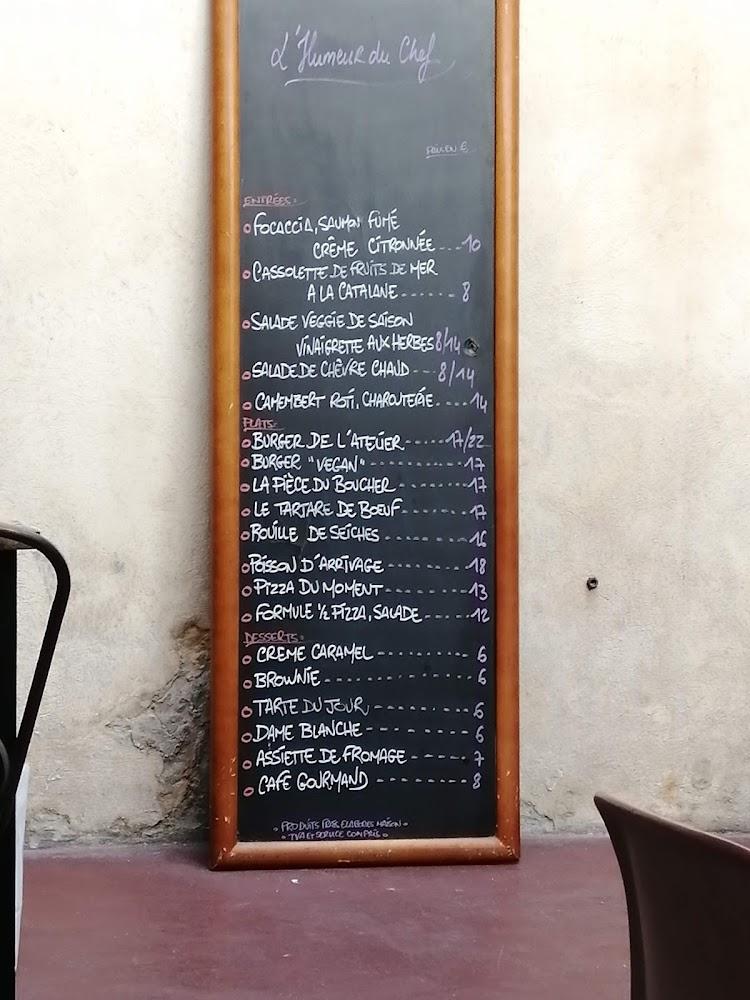 L'Humeur du Chef
PRIX EN €
ENTRÉES:
FOCACCIA, SAUMON FUMÉ
CRÊME CITRONNÉE ---- 10
CASSOLETTE DE FRUITS DE MER
A LA CATALANE ------ 8
SALADE VEGGIE DE SAISON
VINAIGRETTE AUX HERBES 8/14
SALADE DE CHÊVRE CHAUD --- 8/14
CAMEMBERT ROTI, CHARCUTERIE ---- 14
PLATS:
BURGER DE L'ATELIER ------ 17/22
BURGER "VEGAN" ---------- 17
LA PIÈCE DU BOUCHER -------- 17
LE TARTARE DE BŒUF ------- 17
ROUILLE DE SEICHES --------- 16
POISSON D'ARRIVAGE -------- 18
PIZZA DU MOMENT -------- 13
FORMULE ½ PIZZA, SALADE ----- 12
DESSERTS:
CREME CARAMEL --------- 6
BROWNIE --------------- 6
TARTE DU JOUR ---------- 6
DAME BLANCHE ---------- 6
ASSIETTE DE FROMAGE ------ 7
CAFE GOURMAND --------- 8
• PRODUITS FRAIS ELABORES MAISON •
• TVA ET SERVICE COMPRIS •